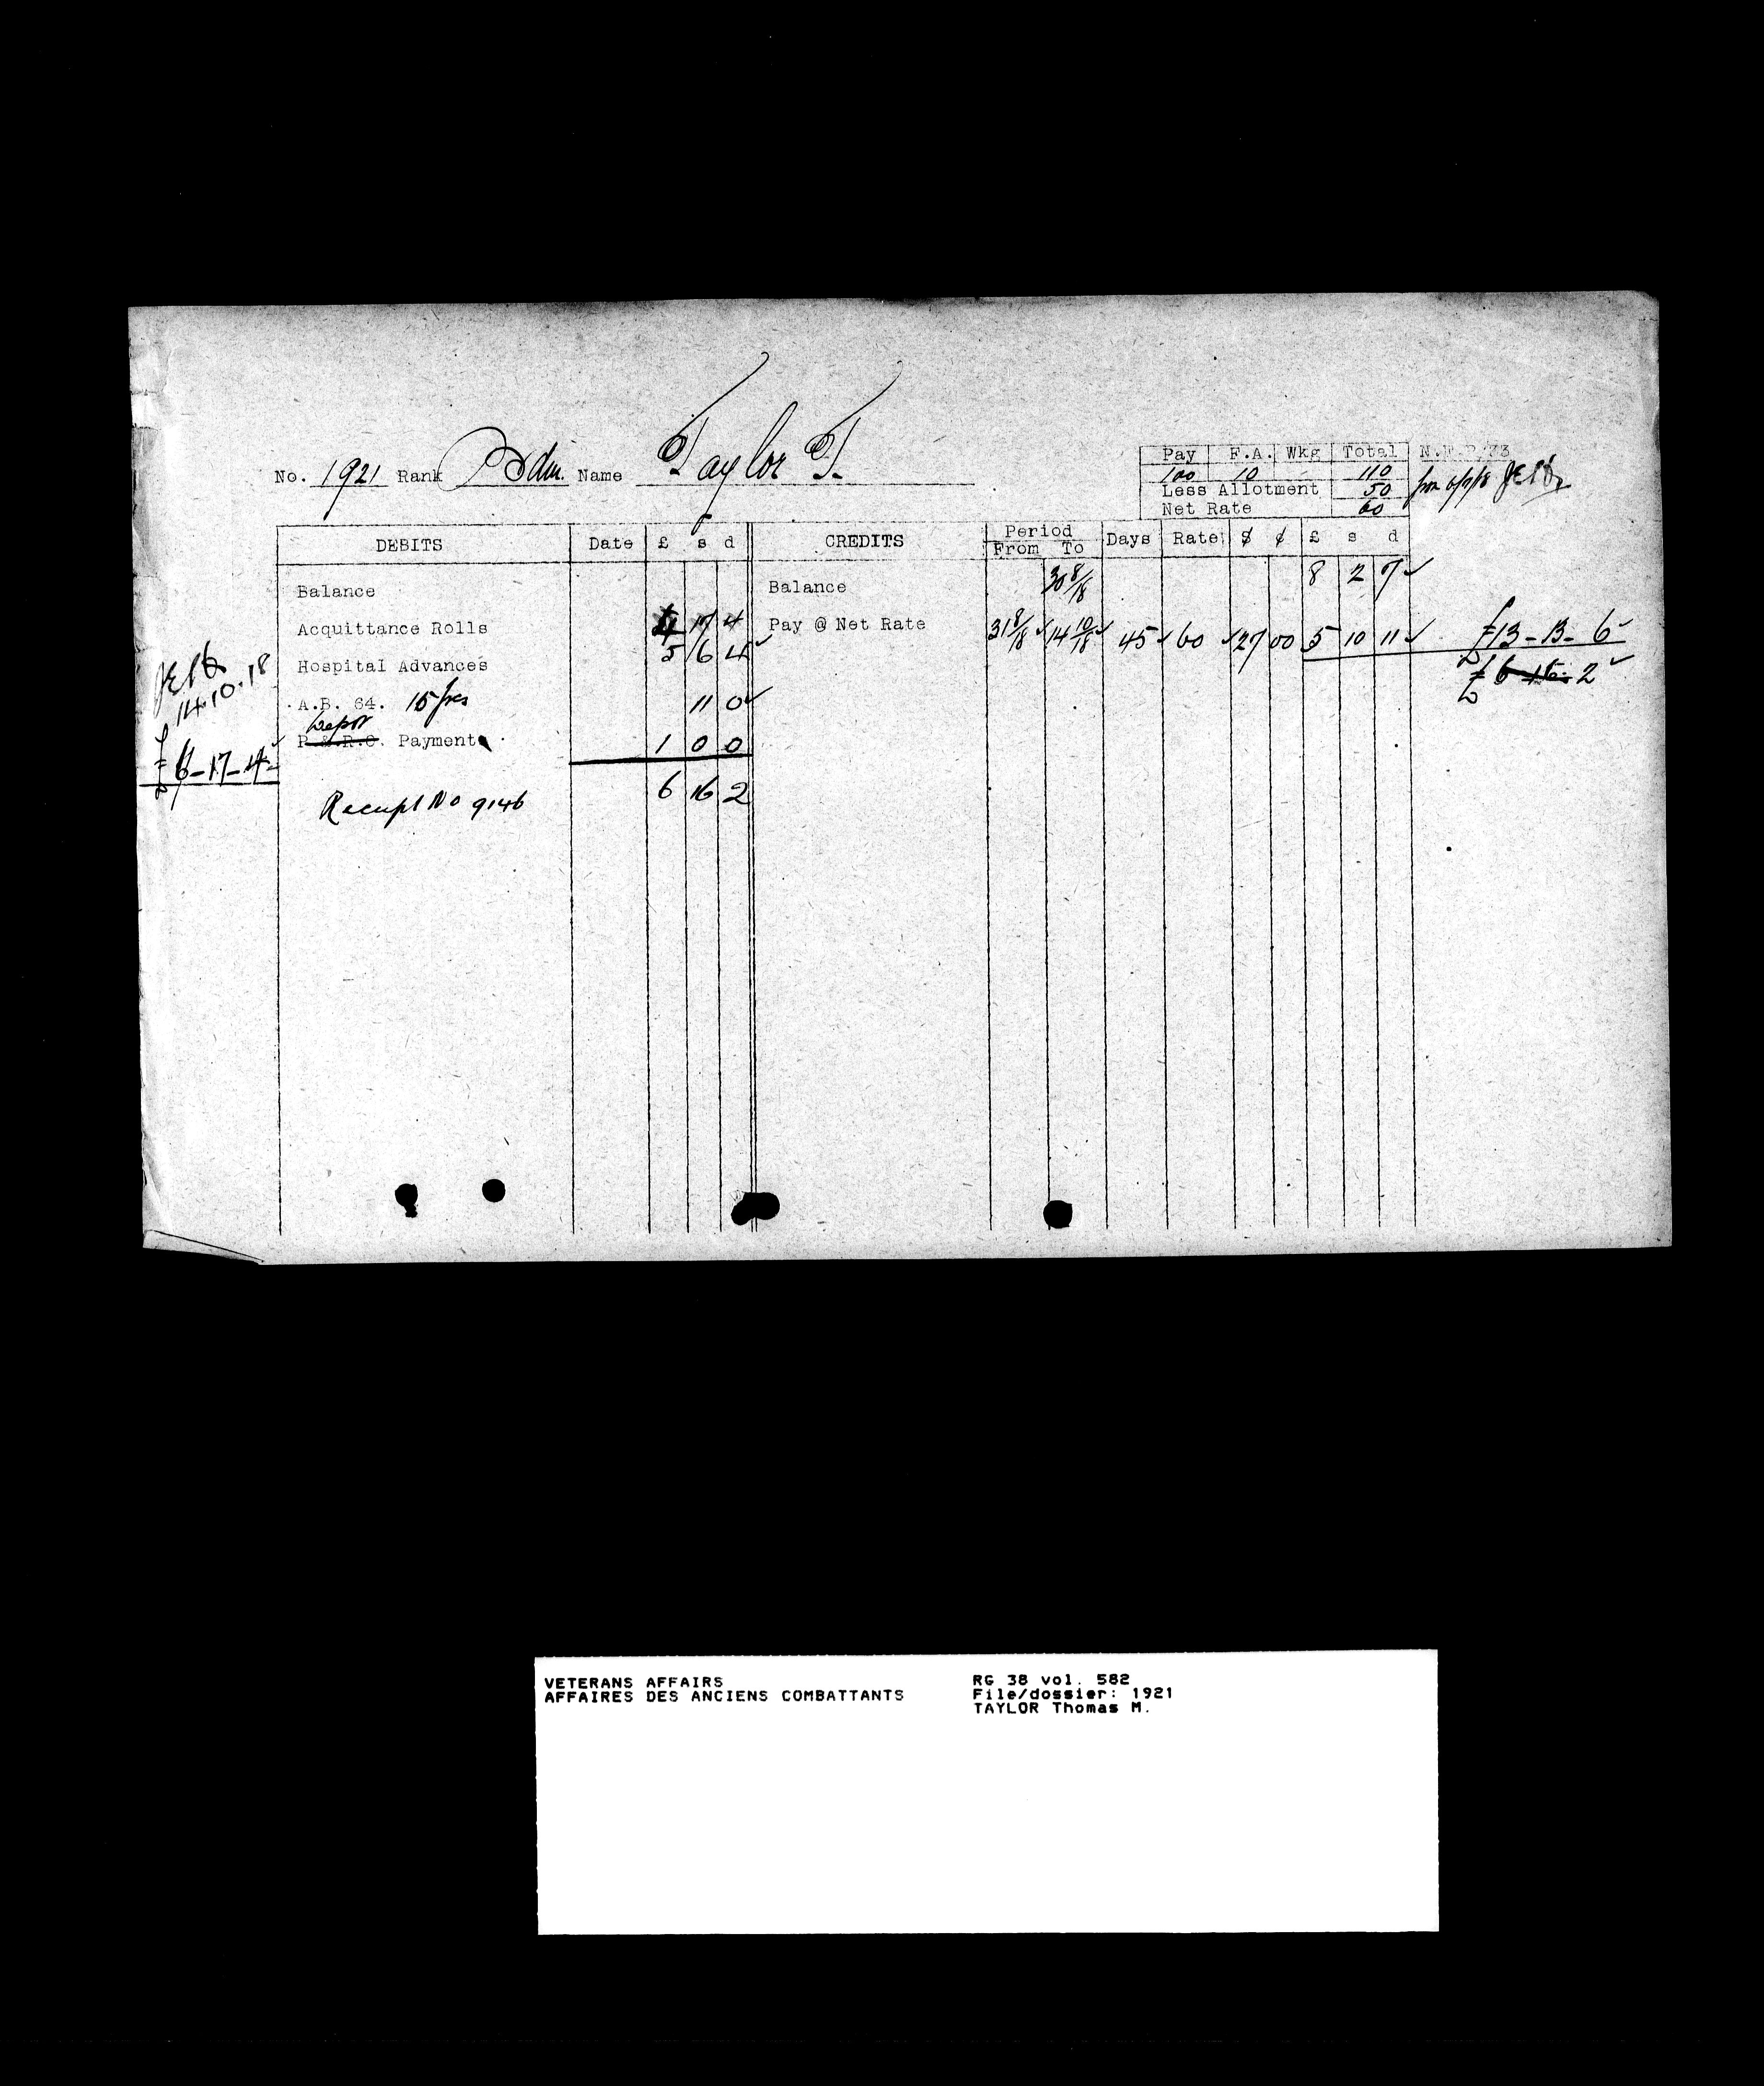 No. 1921 Rank Name Taylor T.
Pay F.A. Wkg Total N.F.P/73
100 10 - 110
Less Allotment 50
Net Rate 60
DEBITS Date £ s d CREDITS Period From To Days Rate $ ¢ £ s d
Balance Balance 30 8/18 8 2 7
Acquittance Rolls 4 17 4 Pay @ Net Rate 31 8/18 14 10/18 45 60 27 00 5 10 11 £13-13-6
5 6 4
Hospital Advances £6-16-2
14.10.18
A.B. 64. 15 frs 11 0
Depot
P & R.C. Payment 1 0 0
£6-17-4
6 16 2
Receipt No 9146
VETERANS AFFAIRS
AFFAIRES DES ANCIENS COMBATTANTS
RG 38 vol. 582
File/dossier: 1921
TAYLOR Thomas M.